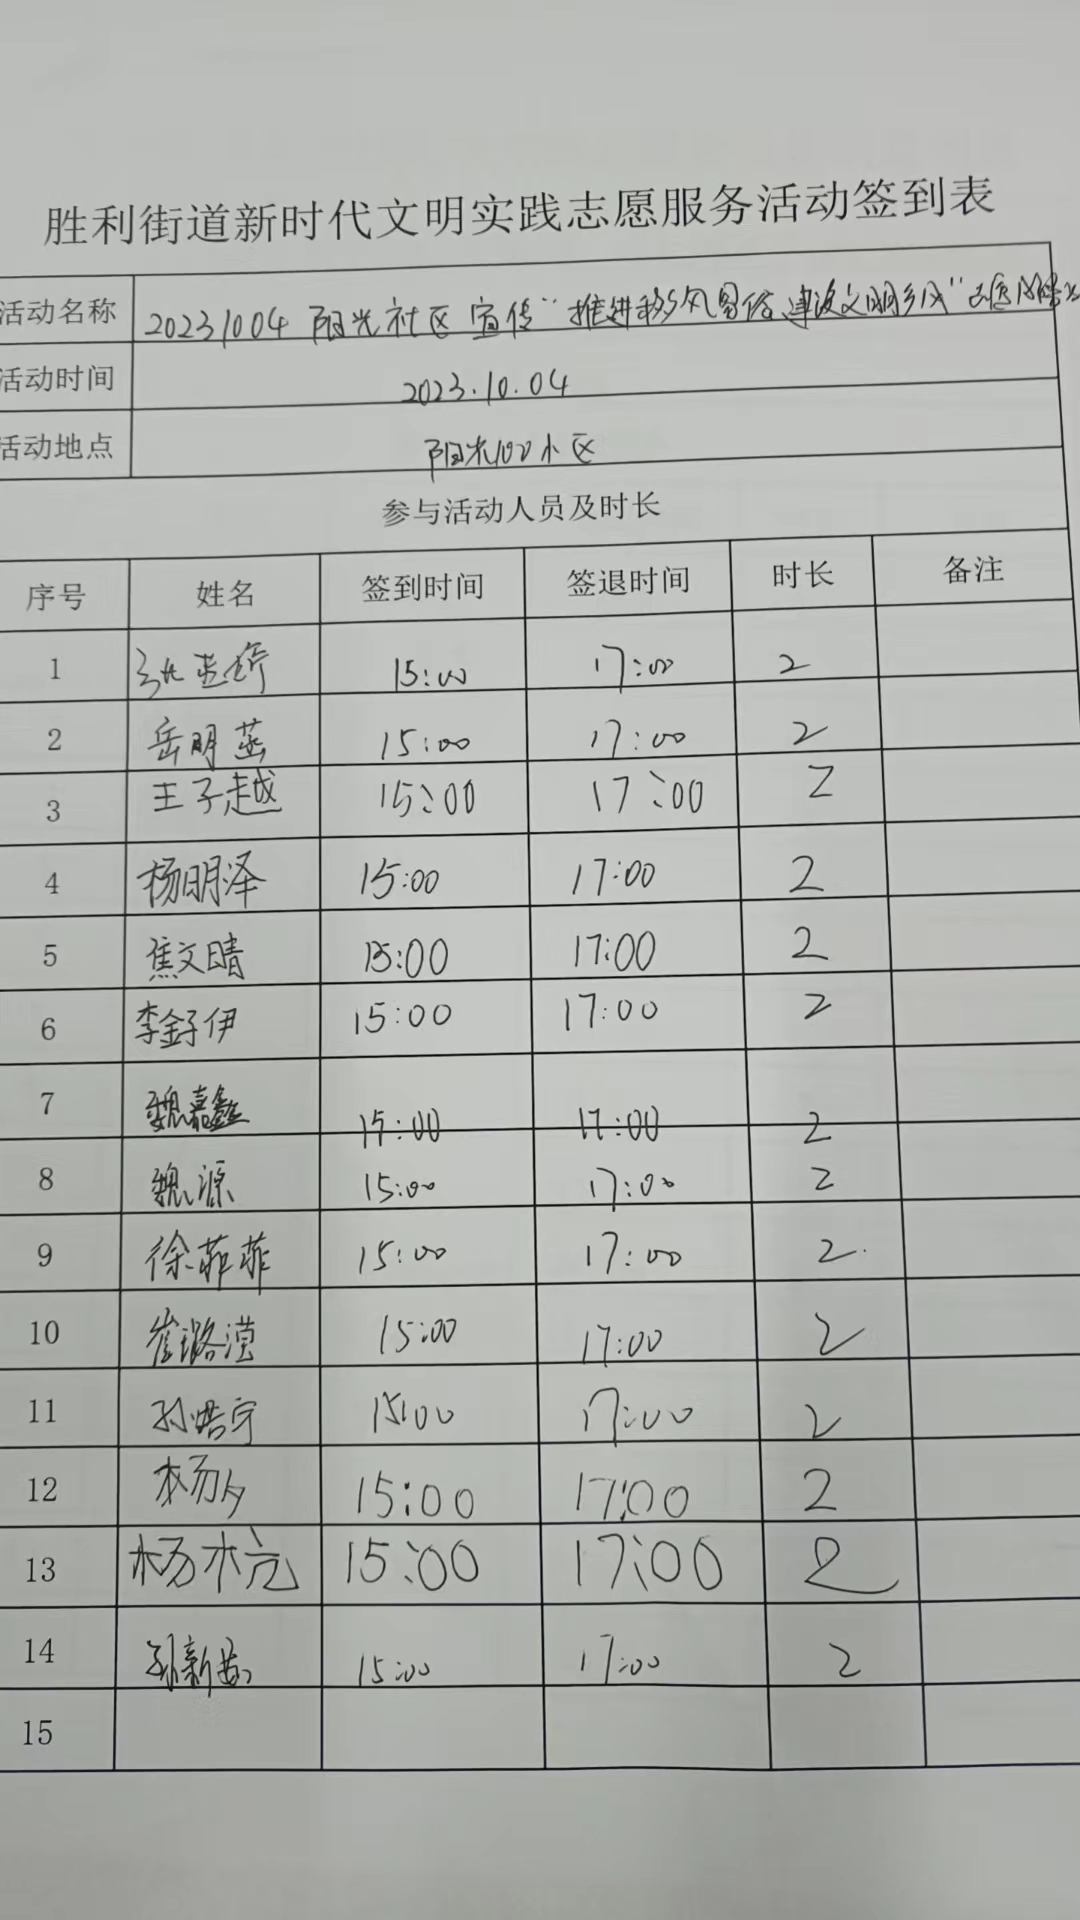 胜利街道新时代文明实践志愿服务活动签到表
活动名称 20231004 阳光社区宣传“推进移风易俗,建设文明乡风”志愿服务
活动时间 2023.10.04
活动地点 阳光100小区
参与活动人员及时长
序号 姓名 签到时间 签退时间 时长 备注
1 张 15:00 17:00 2
2 岳明燕 15:00 17:00 2
3 王子越 15:00 17:00 2
4 杨明泽 15:00 17:00 2
5 焦文晴 15:00 17:00 2
6 李金子伊 15:00 17:00 2
7 魏嘉鑫 15:00 17:00 2
8 魏源 15:00 17:00 2
9 徐菲菲 15:00 17:00 2
10 崔璐滢 15:00 17:00 2
11 孙浩宇 15:00 17:00 2
12 杨夕 15:00 17:00 2
13 杨木亢 15:00 17:00 2
14 孙新 15:00 17:00 2
15